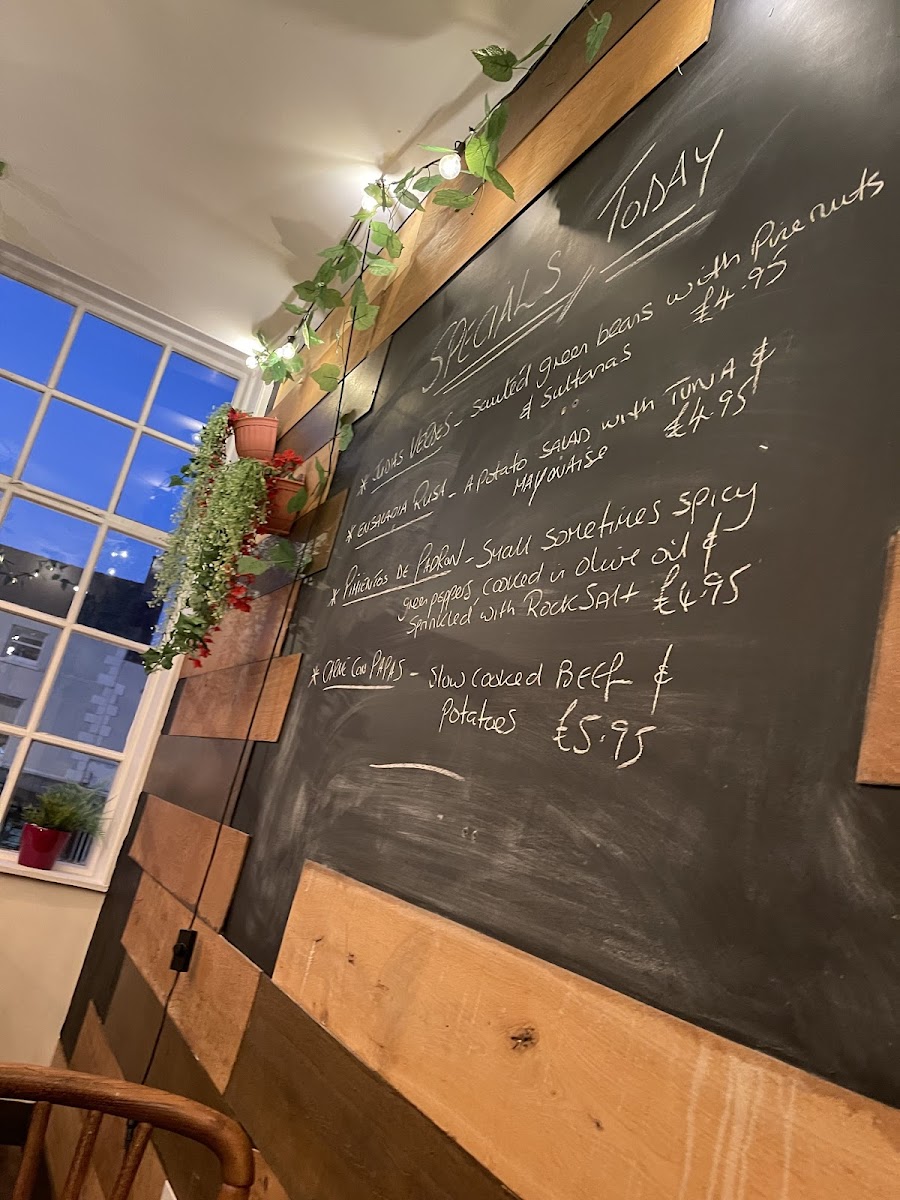 SPECIALS TODAY
* JUDAS VERDES - sauté'd green beans with Pine nuts
& Sultanas £4.95
* ENSALADIA RUSA - A Potato SALAD with TUNA &
MAYONAISE £4.95
* PIMIENTOS DE PADRON - Small sometimes spicy
green peppers, cooked in olive oil &
Sprinkled with ROCK SALT £4.95
* CARNE CON PAPAS - Slow cooked BEEF &
Potatoes £5.95